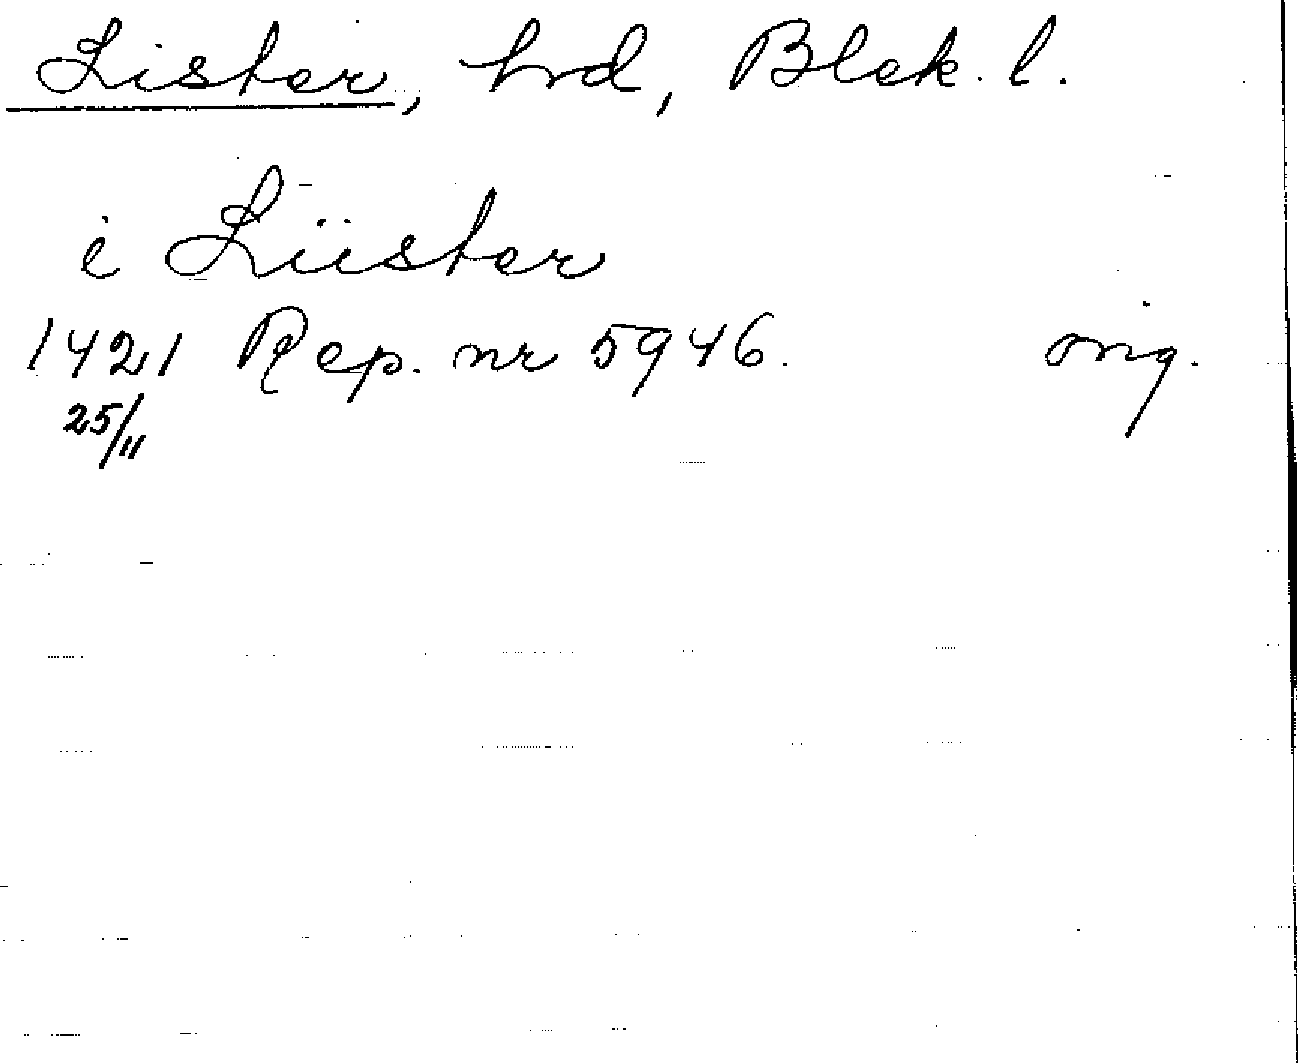 Lister, hrd, Blek. l.
i Liister
1421 Rep. nr 5946. orig.
25/11